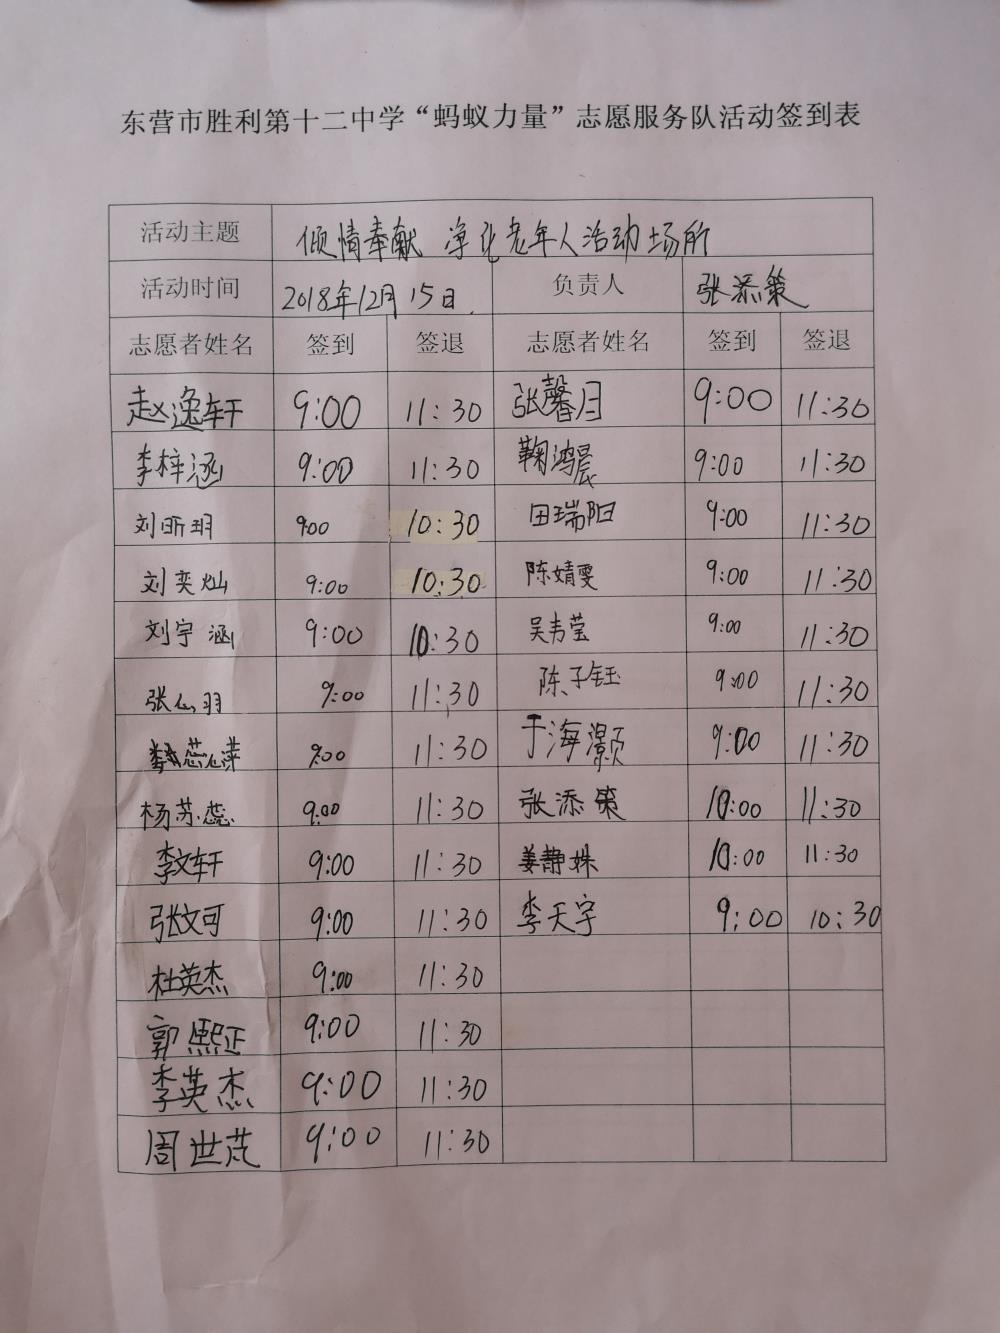 东营市胜利第十二中学“蚂蚁力量”志愿服务队活动签到表
活动主题 倾情奉献 净化老年人活动场所
活动时间 2018年12月15日. 负责人 张添策
志愿者姓名 签到 签退 志愿者姓名 签到 签退
赵逸轩 9:00 11:30 张馨月 9:00 11:30
李梓涵 9:00 11:30 鞠鸿晨 9:00 11:30
刘昕玥 9:00 10:30 田瑞阳 9:00 11:30
刘奕灿 9:00 10:30 陈婧雯 9:00 11:30
刘宇涵 9:00 10:30 吴韦莹 9:00 11:30
张仙羽 9:00 11:30 陈子钰 9:00 11:30
9:00 11:30 于海灏 9:00 11:30
杨苏蕊 9:00 11:30 张添策 10:00 11:30
李文轩 9:00 11:30 姜静姝 10:00 11:30
张文可 9:00 11:30 李天宇 9:00 10:30
杜英杰 9:00 11:30
郭熙正 9:00 11:30
李英杰 9:00 11:30
周世芃 9:00 11:30